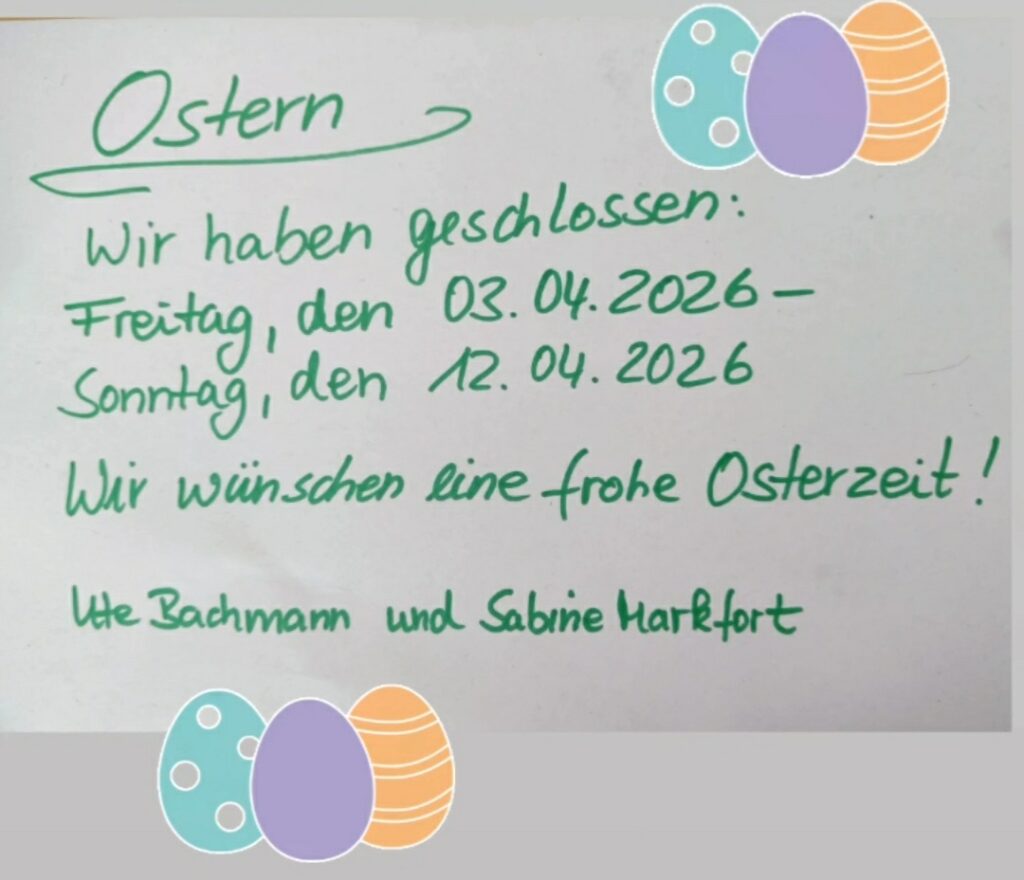 Ostern
Wir haben geschlossen:
Freitag, den 03.04.2026 –
Sonntag, den 12.04.2026
Wir wünschen eine frohe Osterzeit!
Ute Bachmann und Sabine Markfort